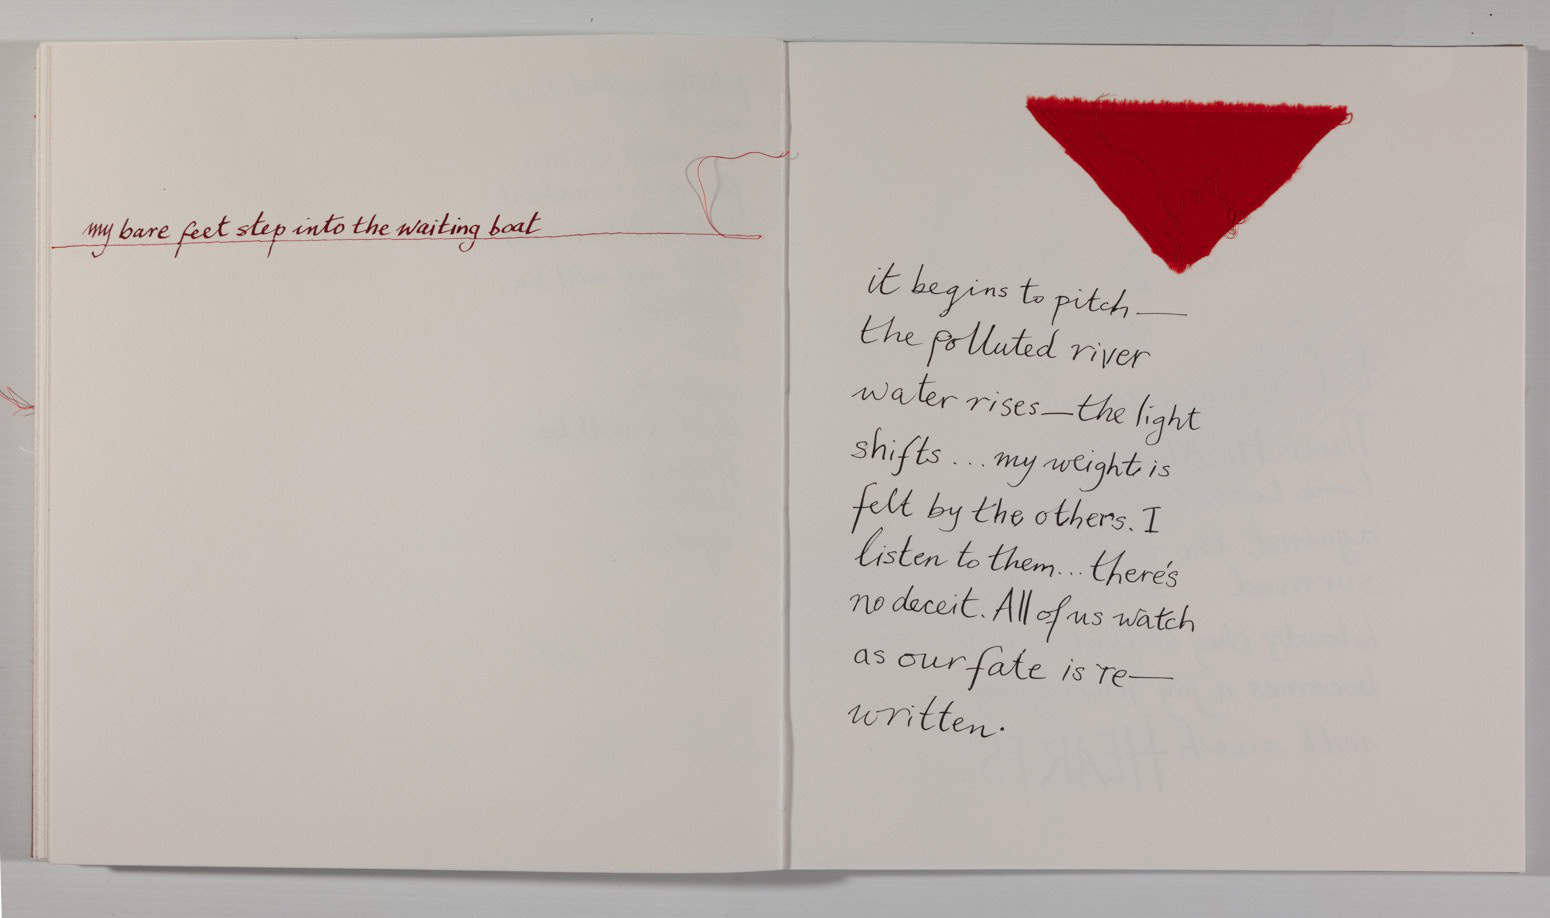 my bare feet step into the waiting boat
it begins to pitch—
the polluted river
water rises—the light
shifts... my weight is
felt by the others. I
listen to them... there's
no deceit. All of us watch
as our fate is re—
written.